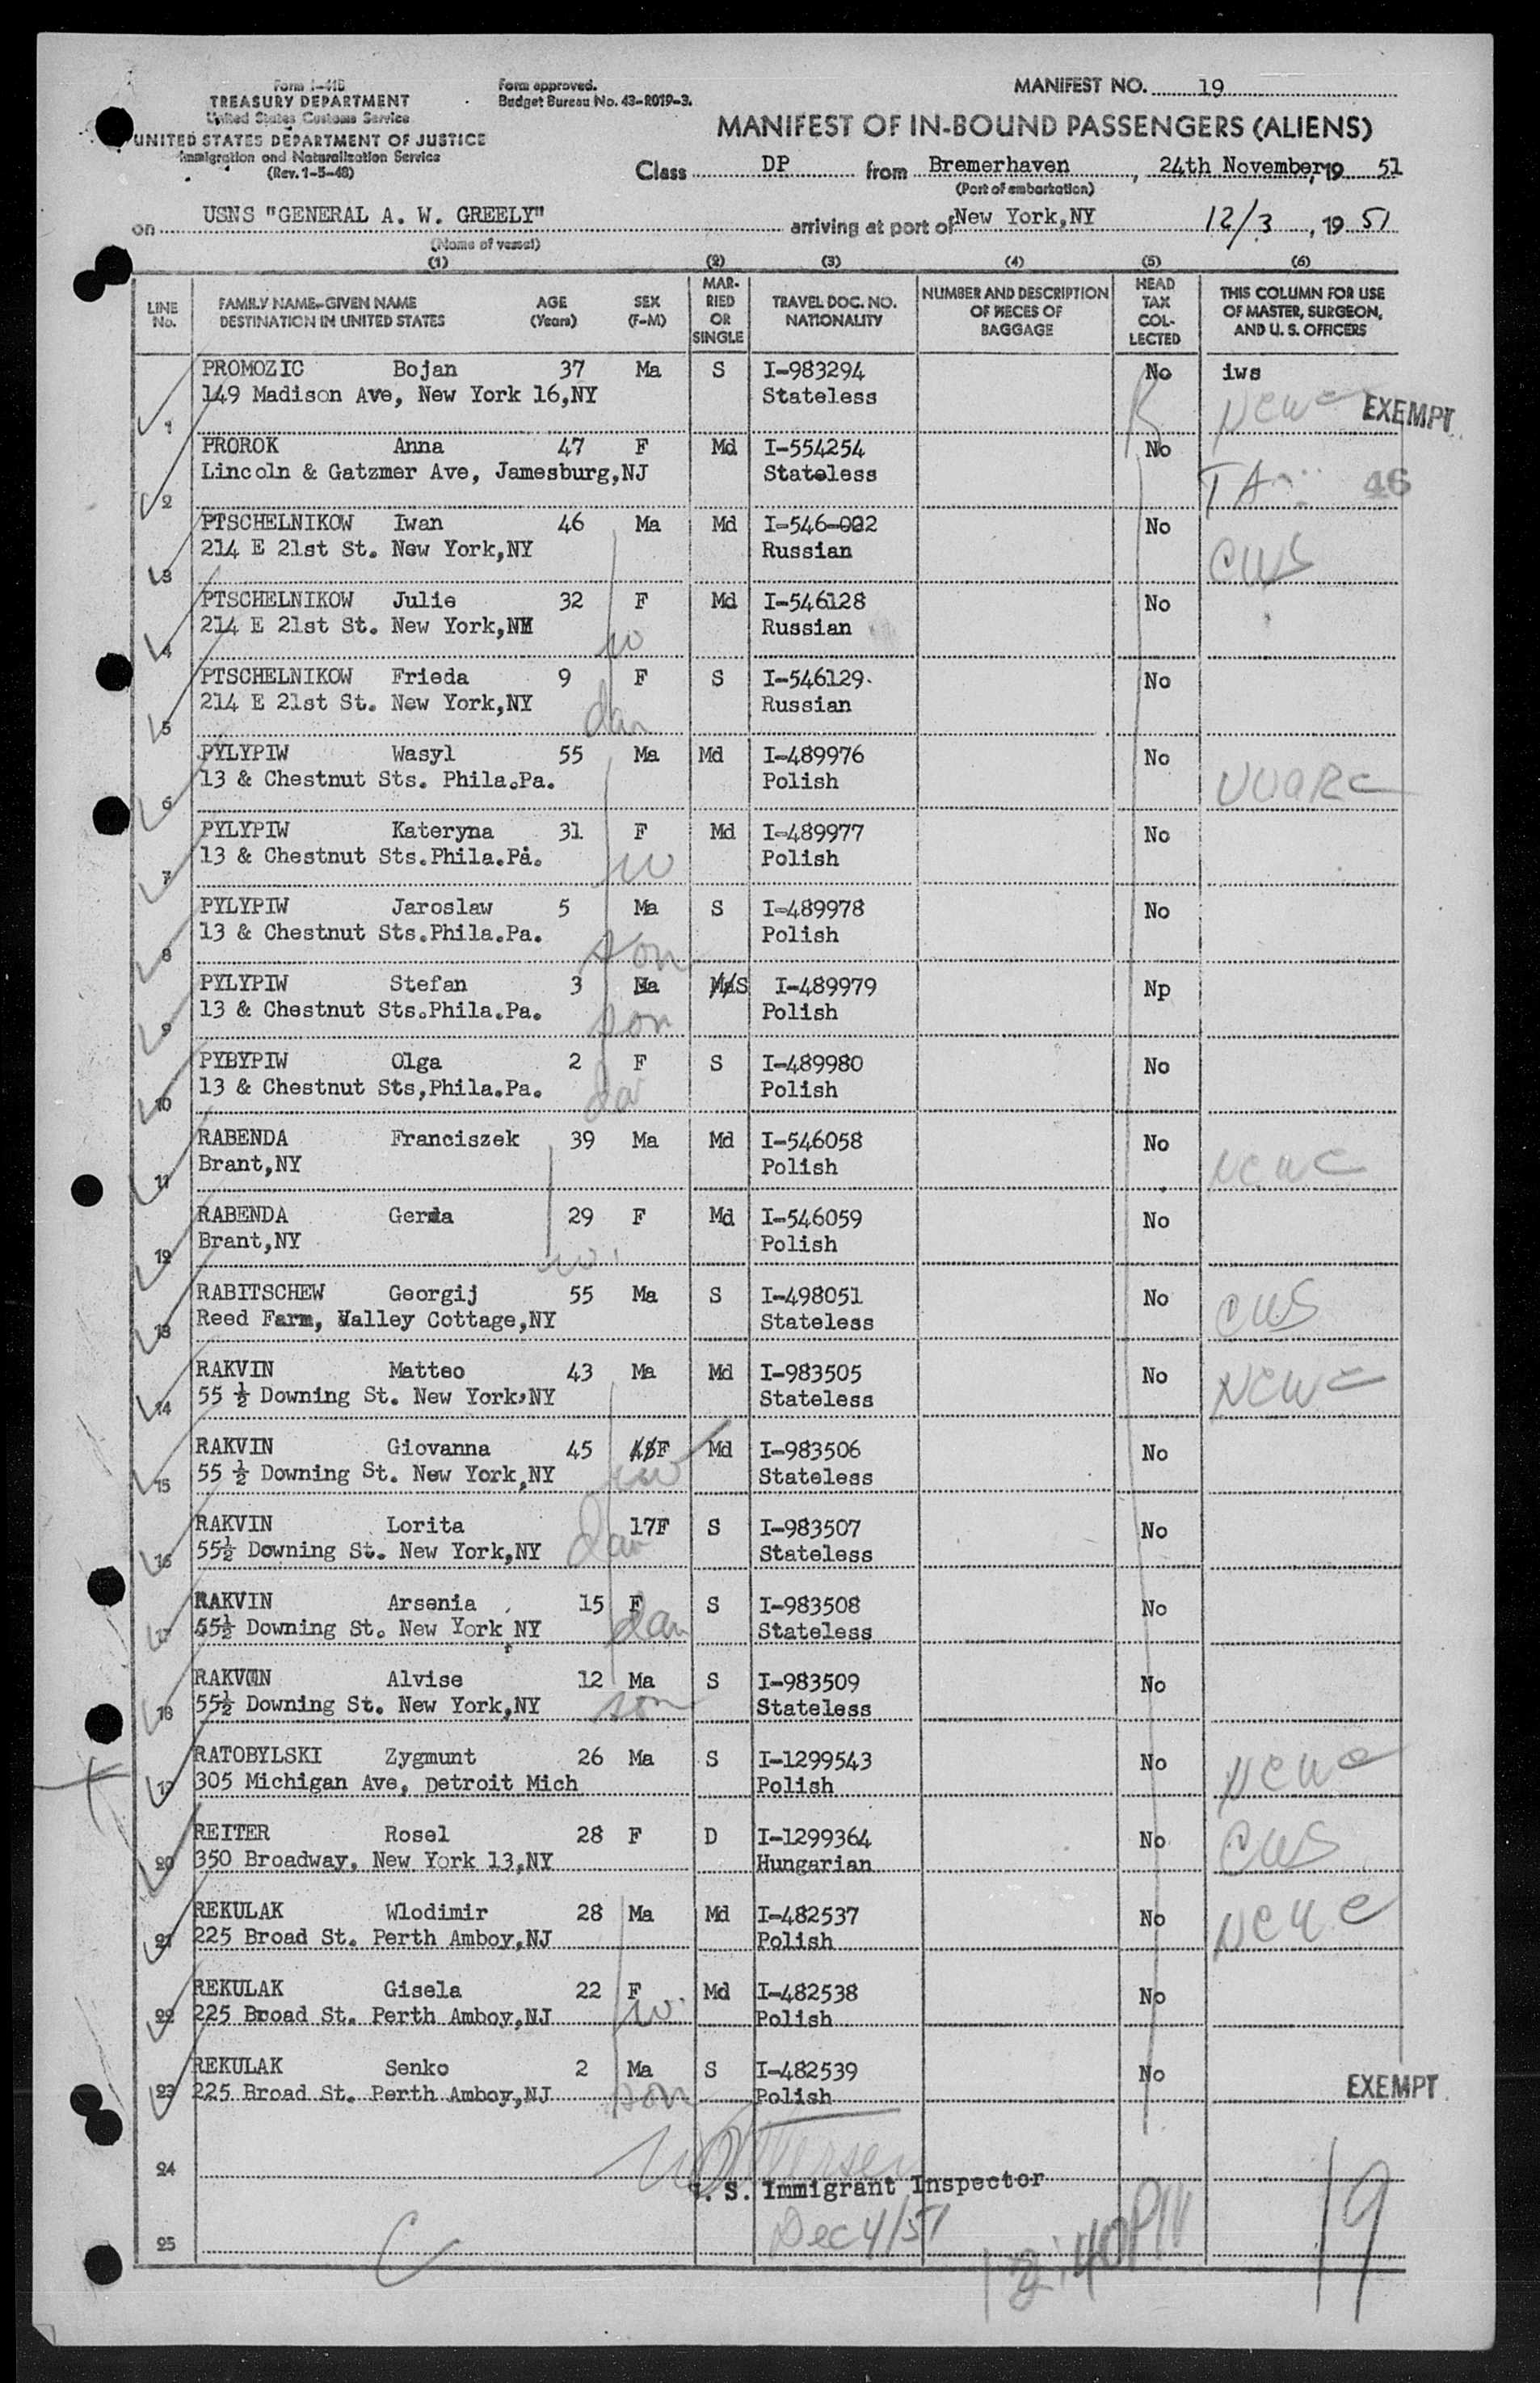 Form I-41B
TREASURY DEPARTMENT
United States Customs Service
UNITED STATES DEPARTMENT OF JUSTICE
Immigration and Naturalization Service
(Rev. 1-5-48)
Form approved.
Budget Bureau No. 43-R019-3.
MANIFEST NO. 19
MANIFEST OF IN-BOUND PASSENGERS (ALIENS)
Class DP from Bremerhaven, 24th November, 19 51
(Port of embarkation)
on USNS "GENERAL A. W. GREELY" arriving at port of New York,NY 12/3, 19 51
(Name of vessel)
(1) (2) (3) (4) (5) (6)
LINE No. FAMILY NAME-GIVEN NAME DESTINATION IN UNITED STATES AGE (Years) SEX (F-M) MARRIED OR SINGLE TRAVEL DOC. NO. NATIONALITY NUMBER AND DESCRIPTION OF PIECES OF BAGGAGE HEAD TAX COLLECTED THIS COLUMN FOR USE OF MASTER, SURGEON, AND U. S. OFFICERS
PROMOZIC Bojan 37 Ma S I-983294 No iws
149 Madison Ave, New York 16,NY Stateless NCWC EXEMPT
1
PROROK Anna 47 F Md I-554254 No
Lincoln & Gatzmer Ave, Jamesburg,NJ Stateless 46
2
PTSCHELNIKOW Iwan 46 Ma Md No
214 E 21st St. New York,NY Russian CWS
3
PTSCHELNIKOW Julie 32 F Md I-546128 No
214 E 21st St. New York, Russian
4 w
PTSCHELNIKOW Frieda 9 F S I-546129 No
214 E 21st St. New York,NY Russian
5 dau
PYLYPIW Wasyl 55 Ma Md I-489976 No
13 & Chestnut Sts. Phila.Pa. Polish UUARC
6
PYLYPIW Kateryna 31 F Md I-489977 No
13 & Chestnut Sts.Phila.Pa. Polish
7 w
PYLYPIW Jaroslaw 5 Ma S I-489978 No
13 & Chestnut Sts.Phila.Pa. Polish
8 son
PYLYPIW Stefan 3 Ma S I-489979 Np
13 & Chestnut Sts.Phila.Pa. Polish
9 son
PYBYPIW Olga 2 F S I-489980 No
13 & Chestnut Sts,Phila.Pa. Polish
10 da
RABENDA Franciszek 39 Ma Md I-546058 No
Brant,NY Polish NCWC
11
RABENDA Gerda 29 F Md I-546059 No
Brant,NY Polish
12 w.
RABITSCHEW Georgij 55 Ma S I-498051 No
Reed Farm, Valley Cottage,NY Stateless CWS
13
RAKVIN Matteo 43 Ma Md I-983505 No
55 ½ Downing St. New York,NY Stateless NCWC
14
RAKVIN Giovanna 45 F Md I-983506 No
55 ½ Downing St. New York,NY Stateless
15 w
RAKVIN Lorita 17F S I-983507 No
55½ Downing St. New York,NY Stateless
16 dau
RAKVIN Arsenia 15 F S I-983508 No
55½ Downing St. New York,NY Stateless
17 dau
RAKVIN Alvise 12 Ma S I-983509 No
55½ Downing St. New York,NY Stateless
18 son
RATOBYLSKI Zygmunt 26 Ma S I-1299543 No
305 Michigan Ave, Detroit Mich Polish NCWC
19
REITER Rosel 28 F D I-1299364 No
350 Broadway, New York 13,NY Hungarian CWS
20
REKULAK Wlodimir 28 Ma Md I-482537 No
225 Broad St. Perth Amboy,NJ Polish NCWC
21
REKULAK Gisela 22 F Md I-482538 No
225 Broad St. Perth Amboy,NJ Polish
22 w.
REKULAK Senko 2 Ma S I-482539 No
225 Broad St. Perth Amboy,NJ Polish EXEMPT
23 son
24
U. S. Immigrant Inspector
Dec 4/51
25
12:40 PM
19